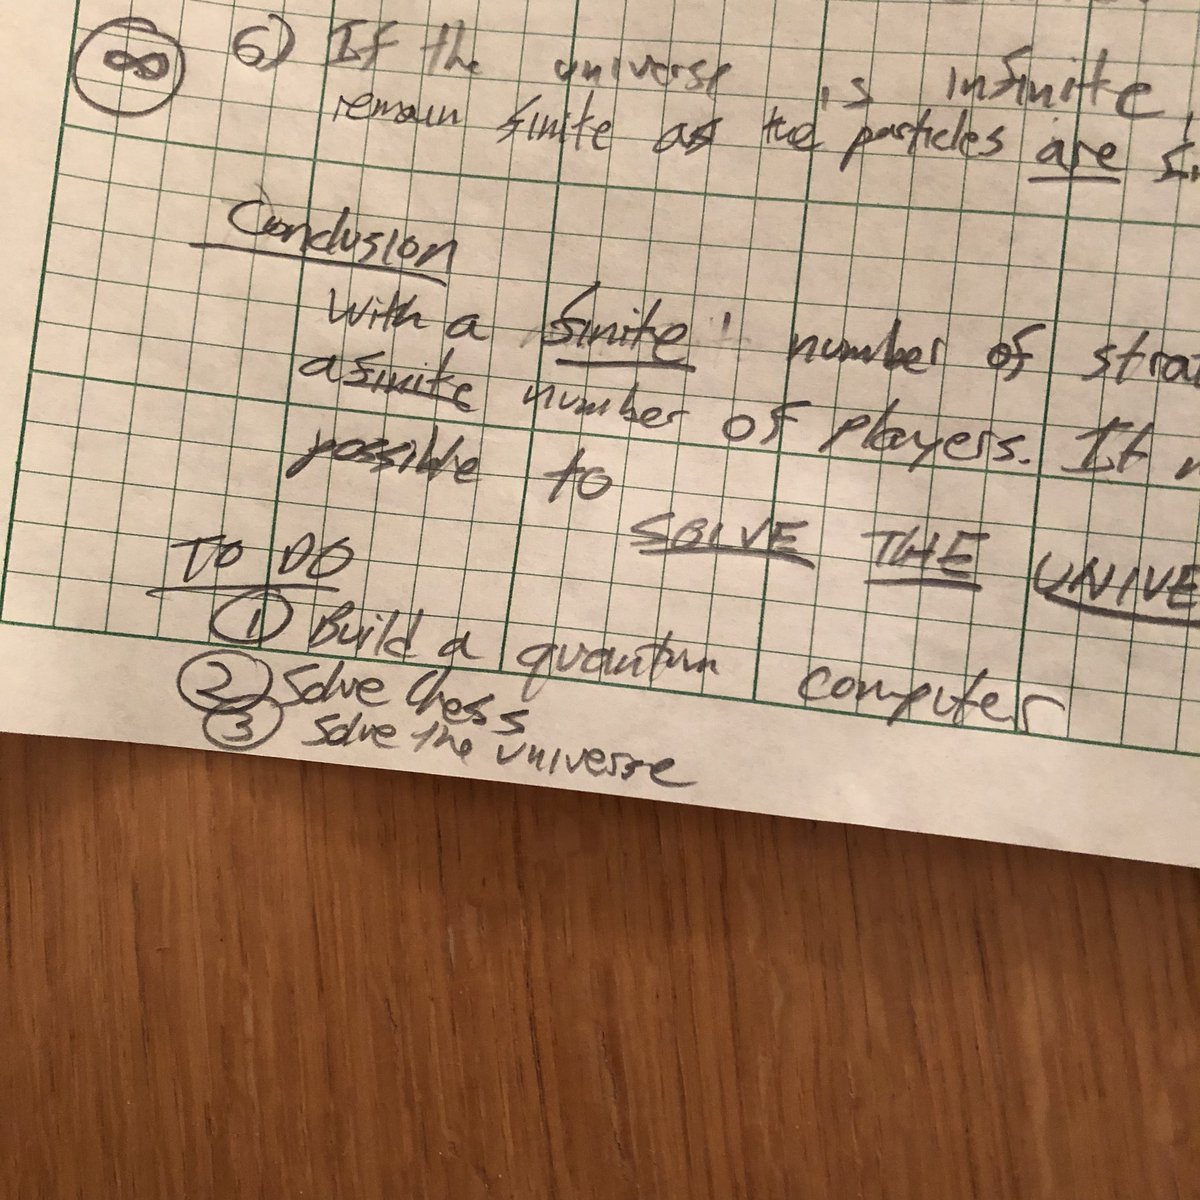 ∞ 6) If the universe is infinite,
remain finite as the particles are
Conclusion
With a finite number of
a finite number of players. It
possible to
SOLVE THE UNIVE
TO DO
① Build a quantum computer
② Solve Chess
③ Solve the universe